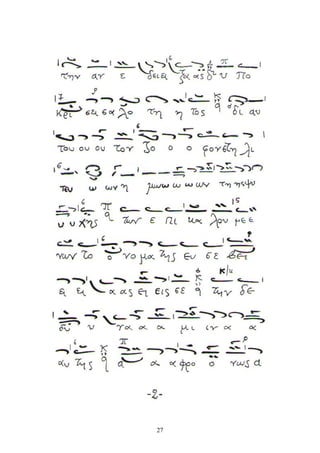 την αν ε δειει ξα ας δ υ πο
κρι σει σα λο τη η τος δι αυ
του ου ου τον ζο ο ο φον ειη λι
του ω ων η μων ω ω ω ων τη ηψυ
υ υ χης των ε πι κα λου με ε
νων το ο νο μα της ευ σε βει
ει ει α ας ει εις σε την δε
συ υ να α α μι ιν α α
αυ της α α α φρο ο νως α
-2-
27